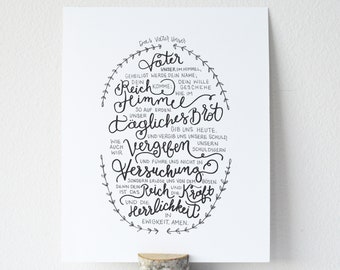 Das Vater Unser
Vater
UNSER IM HIMMEL,
GEHEILIGT WERDE DEIN NAME,
DEIN Reich KOMME, DEIN WILLE GESCHEHE
WIE IM Himmel
SO AUF ERDEN
UNSER tägliches Brot
GIB UNS HEUTE.
UND VERGIB UNS UNSERE SCHULD,
WIE AUCH WIR Vergeben UNSERN SCHULDIGERN
UND FÜHRE UNS NICHT IN
Versuchung
SONDERN ERLÖSE UNS VON DEM BÖSEN.
DENN DEIN IST DAS Reich UND DIE Kraft
UND DIE Herrlichkeit
IN
EWIGKEIT. AMEN.